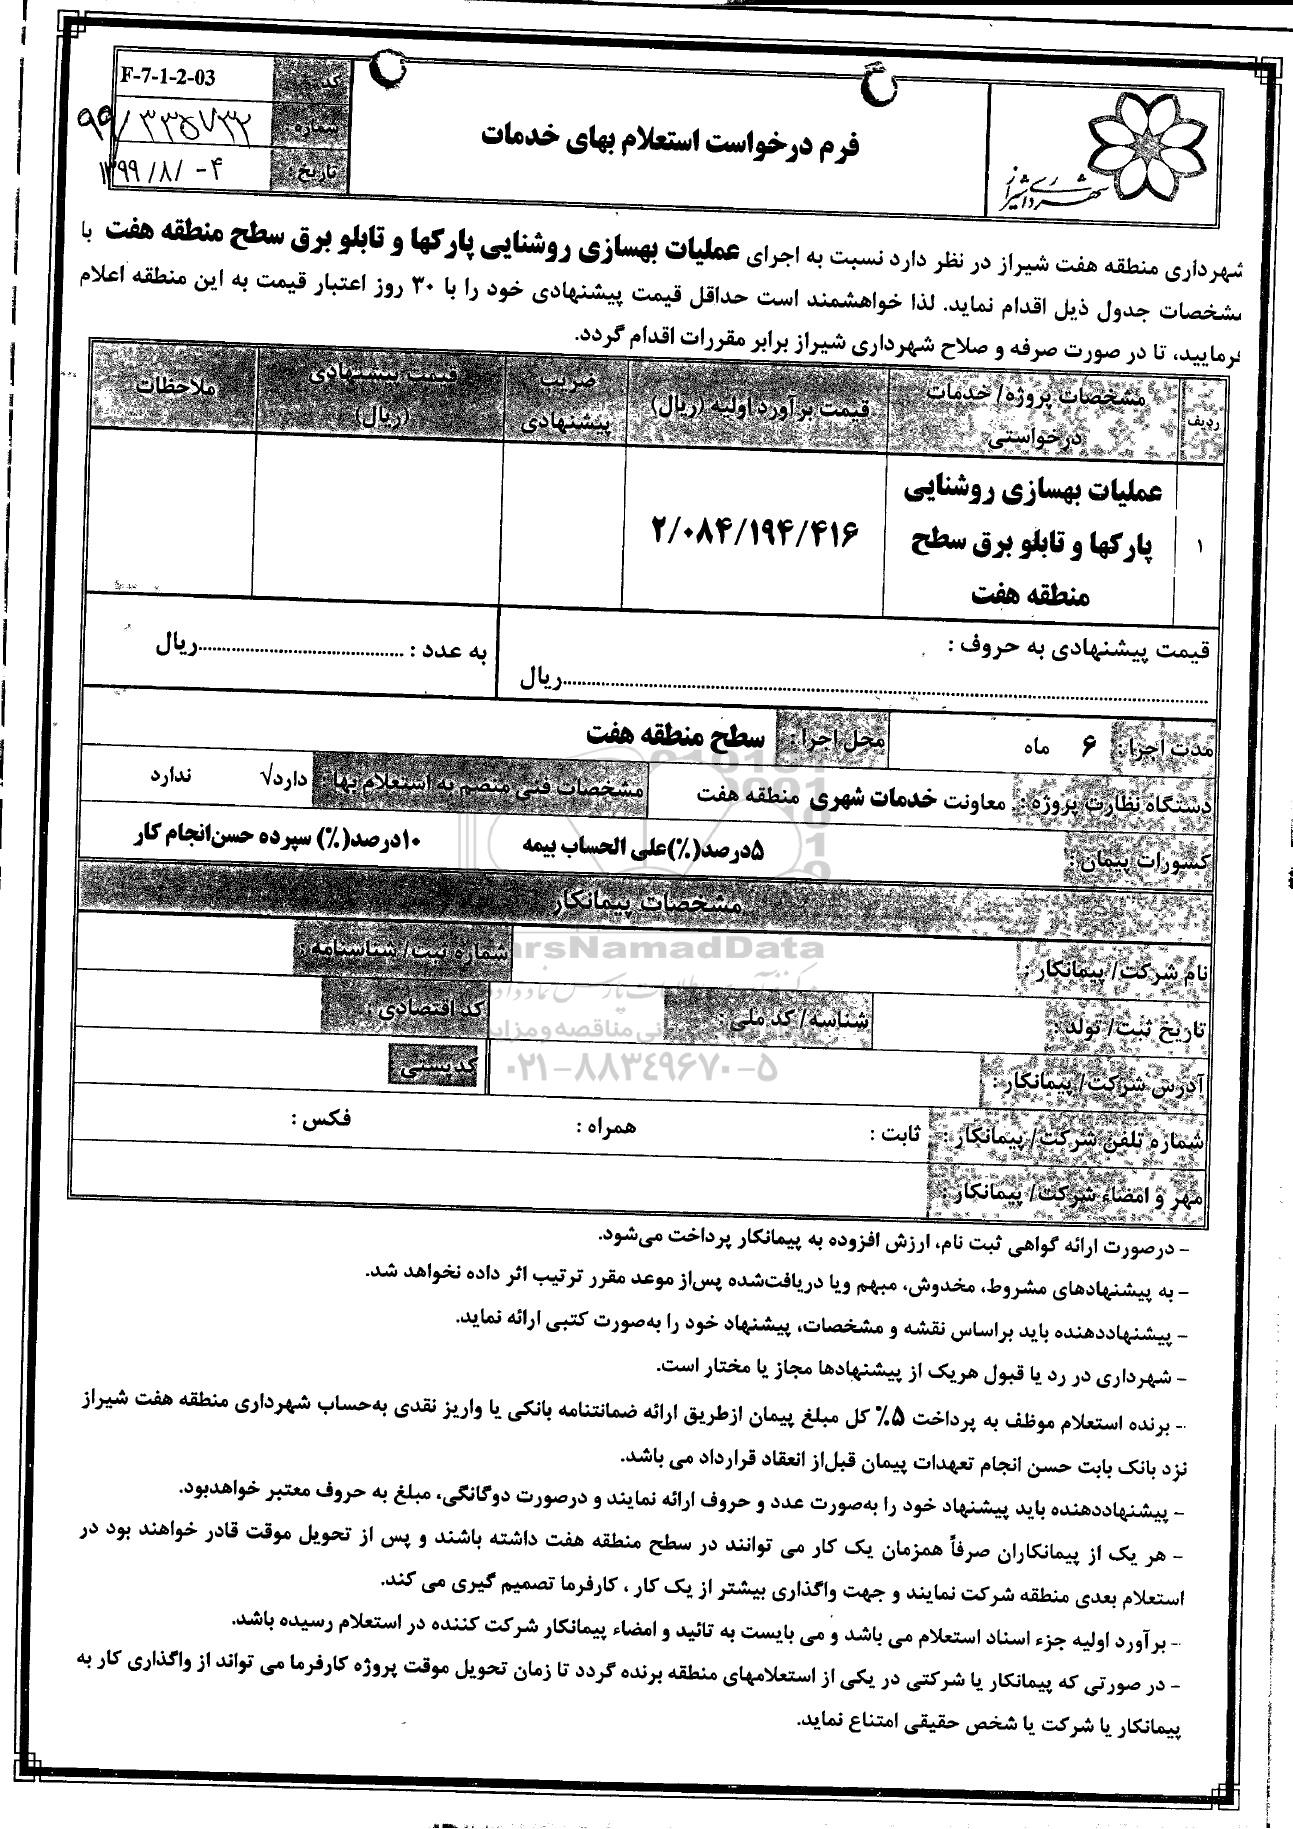 شهرداری شیراز
فرم درخواست استعلام بهای خدمات
کد : F-7-1-2-03
شماره : ۹۹/۳۳۵۷۳۲
تاریخ : ۱۳۹۹/۸/۰۴
شهرداری منطقه هفت شیراز در نظر دارد نسبت به اجرای عملیات بهسازی روشنایی پارکها و تابلو برق سطح منطقه هفت با
مشخصات جدول ذیل اقدام نماید. لذا خواهشمند است حداقل قیمت پیشنهادی خود را با ۳۰ روز اعتبار قیمت به این منطقه اعلام
فرمایید، تا در صورت صرفه و صلاح شهرداری شیراز برابر مقررات اقدام گردد.
ردیف
مشخصات پروژه/ خدمات درخواستی
قیمت برآورد اولیه (ریال)
ضریب پیشنهادی
قیمت پیشنهادی (ریال)
ملاحظات
۱
عملیات بهسازی روشنایی
پارکها و تابلو برق سطح
منطقه هفت
۲/۰۸۴/۱۹۴/۴۱۶
قیمت پیشنهادی به حروف :
..........ریال
به عدد : ..........ریال
مدت اجرا : ۶ ماه
محل اجرا : سطح منطقه هفت
دستگاه نظارت پروژه : معاونت خدمات شهری منطقه هفت
مشخصات فنی منضم به استعلام بها : دارد√ ندارد
کسورات پیمان : ۵درصد(%)علی الحساب بیمه ۱۰درصد(%) سپرده حسن‌انجام کار
مشخصات پیمانکار
نام شرکت/ پیمانکار :
شماره ثبت/ شناسنامه :
تاریخ ثبت/ تولد :
شناسه/ کد ملی :
کد اقتصادی :
آدرس شرکت/ پیمانکار :
کد پستی
شماره تلفن شرکت/ پیمانکار : ثابت : همراه : فکس :
مهر و امضاء شرکت/ پیمانکار :
ParsNamadData
۰۲۱-۸۸۳۴۹۶۷۰-۵
- درصورت ارائه گواهی ثبت نام، ارزش افزوده به پیمانکار پرداخت می‌شود.
- به پیشنهادهای مشروط، مخدوش، مبهم ویا دریافت‌شده پس‌از موعد مقرر ترتیب اثر داده نخواهد شد.
- پیشنهاددهنده باید براساس نقشه و مشخصات، پیشنهاد خود را به‌صورت کتبی ارائه نماید.
- شهرداری در رد یا قبول هریک از پیشنهادها مجاز یا مختار است.
- برنده استعلام موظف به پرداخت ۵٪ کل مبلغ پیمان ازطریق ارائه ضمانتنامه بانکی یا واریز نقدی به‌حساب شهرداری منطقه هفت شیراز
نزد بانک بابت حسن انجام تعهدات پیمان قبل‌از انعقاد قرارداد می باشد.
- پیشنهاددهنده باید پیشنهاد خود را به‌صورت عدد و حروف ارائه نمایند و درصورت دوگانگی، مبلغ به حروف معتبر خواهدبود.
- هر یک از پیمانکاران صرفاً همزمان یک کار می توانند در سطح منطقه هفت داشته باشند و پس از تحویل موقت قادر خواهند بود در
استعلام بعدی منطقه شرکت نمایند و جهت واگذاری بیشتر از یک کار ، کارفرما تصمیم گیری می کند.
- برآورد اولیه جزء اسناد استعلام می باشد و می بایست به تائید و امضاء پیمانکار شرکت کننده در استعلام رسیده باشد.
- در صورتی که پیمانکار یا شرکتی در یکی از استعلامهای منطقه برنده گردد تا زمان تحویل موقت پروژه کارفرما می تواند از واگذاری کار به
پیمانکار یا شرکت یا شخص حقیقی امتناع نماید.